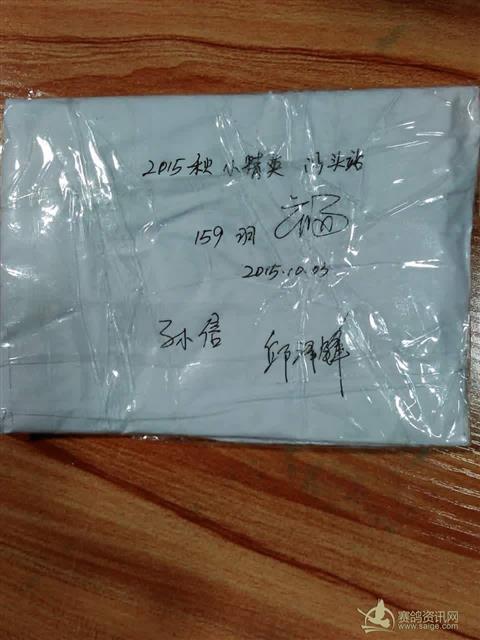 2015秋 小精英 汊头站
159羽
2015.10.03
孙信 邱泽锋
赛鸽资讯网
www.saige.com